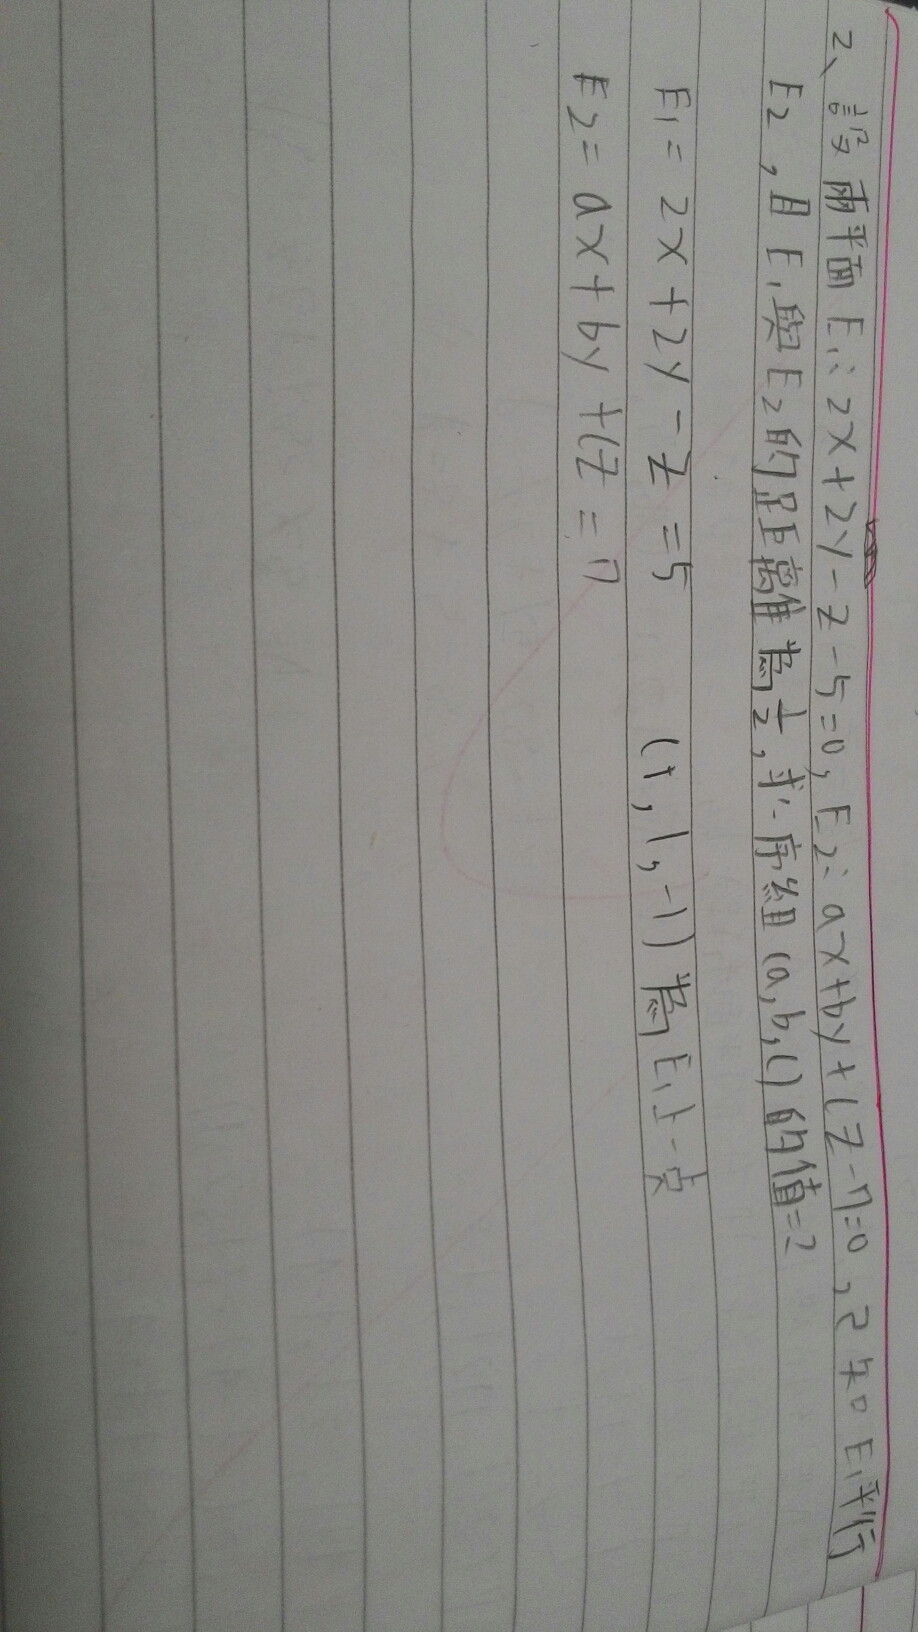 2、設兩平面E₁:2x+2y-z-5=0, E₂:ax+by+cz-7=0,已知E₁平行
E₂,且E₁與E₂的距離為½,求序組(a,b,c)的值=?
E₁=2x+2y-z=5 (1,1,-1)為E₁上一点
E₂=ax+by+cz=7